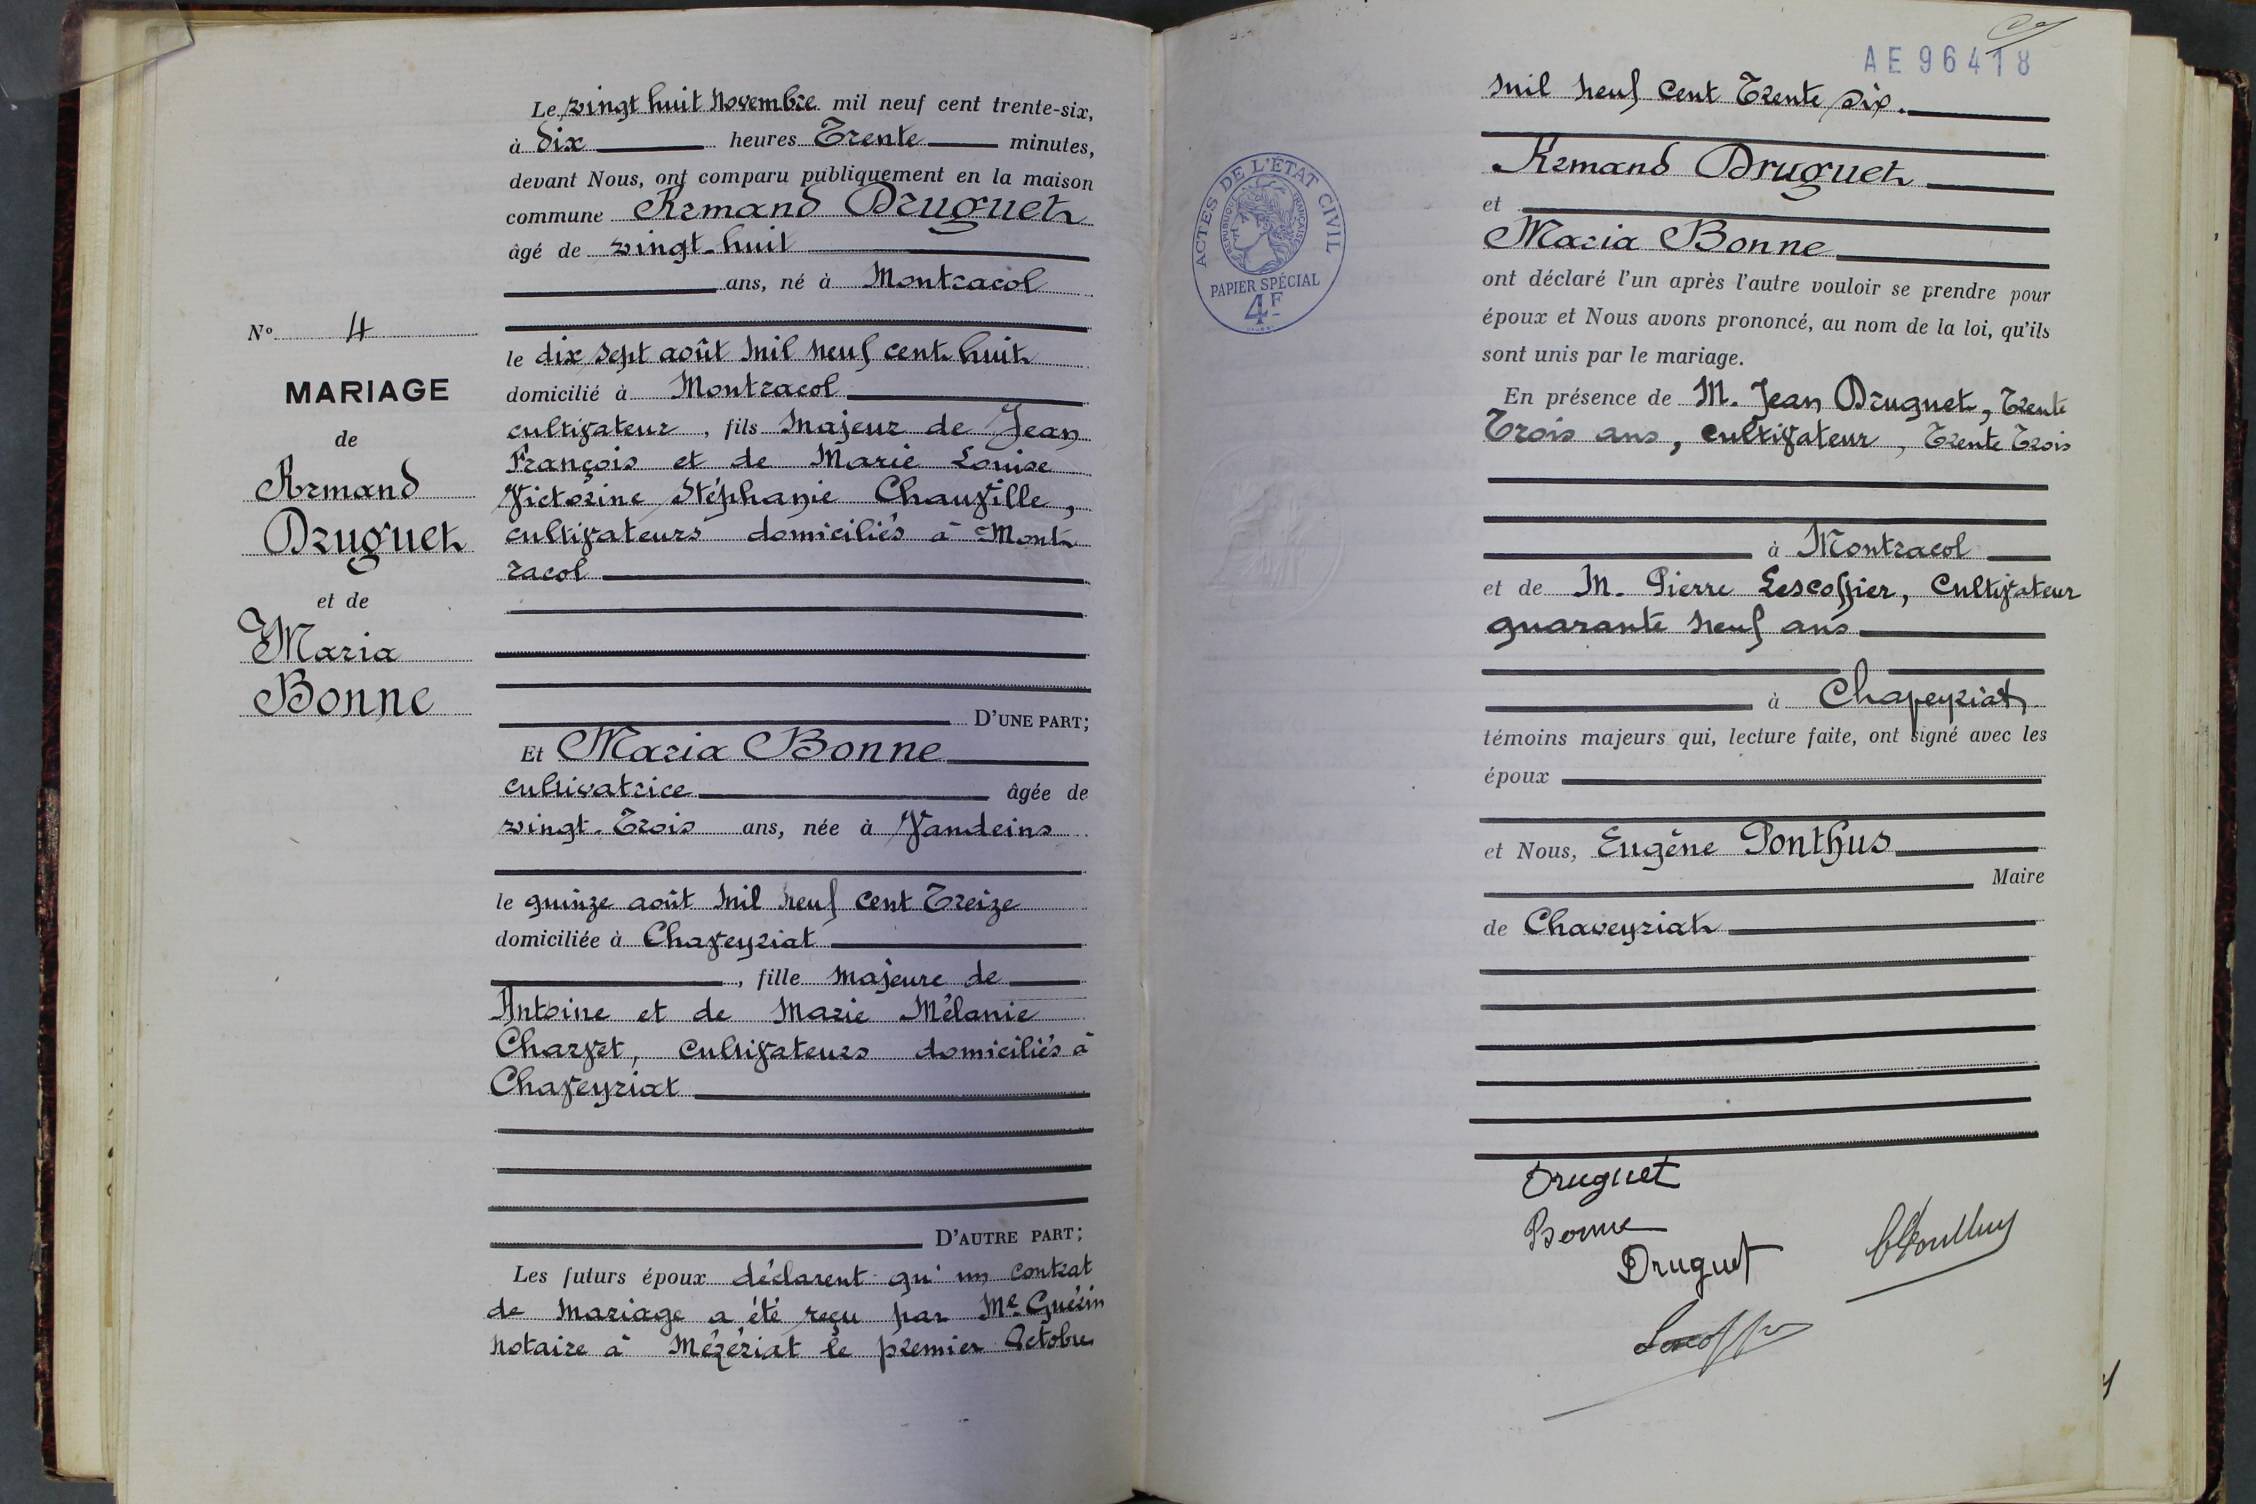 Le vingt huit novembre mil neuf cent trente-six,
à dix heures Trente minutes,
devant Nous, ont comparu publiquement en la maison
commune Armand Druguet
âgé de vingt-huit
ans, né à Montracol
le dix sept août mil neuf cent huit
domicilié à Montracol
cultivateur, fils majeur de Jean
François et de Marie Louise
Victorine Stéphanie Chauville,
cultivateurs domiciliés à Mont
racol
D'UNE PART;
Et Maria Bonne
cultivatrice âgée de
vingt-Trois ans, née à Vandeins
le quinze août mil neuf cent Treize
domiciliée à Chaveyriat
, fille majeure de
Antoine et de Marie Mélanie
Charvet, cultivateurs domiciliés à
Chaveyriat
D'AUTRE PART;
Les futurs époux déclarent qu'un contrat
de mariage a été reçu par Me Guérin
notaire à Mézériat le premier Octobre
No 4
MARIAGE
de
Armand
Druguet
et de
Maria
Bonne
AE96418
mil neuf cent Trente six.
Armand Druguet
et
Maria Bonne
ont déclaré l'un après l'autre vouloir se prendre pour
époux et Nous avons prononcé, au nom de la loi, qu'ils
sont unis par le mariage.
En présence de M. Jean Druguet, Trente
Trois ans, cultivateur, Trente Trois
à Montracol
et de M. Pierre Lescoffier, Cultivateur
quarante neuf ans
à Chaveyriat
témoins majeurs qui, lecture faite, ont signé avec les
époux
et Nous, Eugène Ponthus
Maire
de Chaveyriat
Druguet
Bonne
Druguet
ACTES DE L'ÉTAT CIVIL
RÉPUBLIQUE FRANÇAISE
PAPIER SPÉCIAL
4F